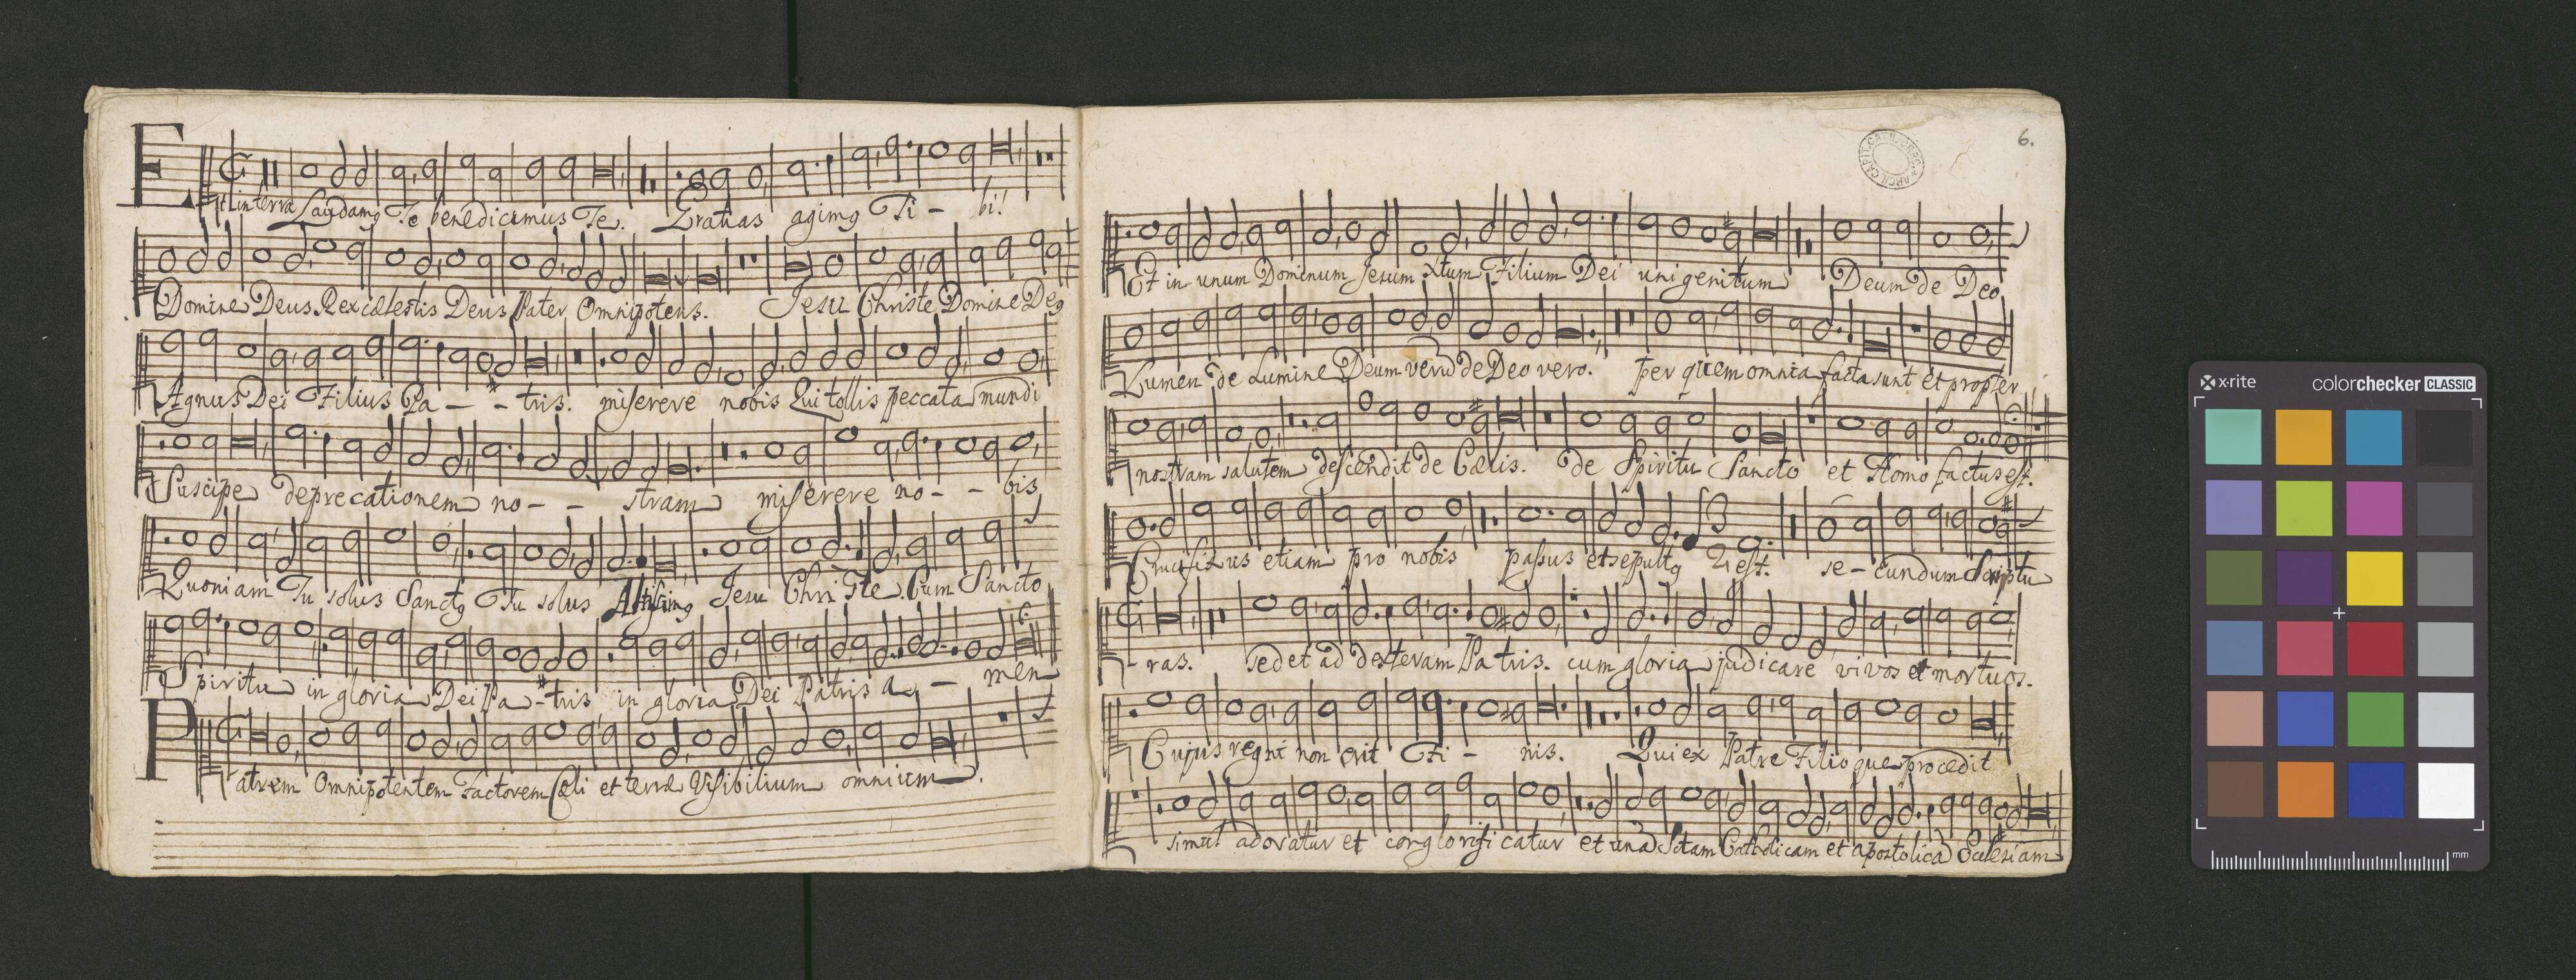 Et in terra Laudamg Te benedicimus Te. Gratias agimg Ti - bi!
Domine Deus Rex cælestis Deus Pater Omnipotens. Jesu Christe Domine Deg
Agnus Dei Filius Pa - - tris. miserere nobis Qui tollis peccata mundi
Suscipe deprecationem no - - stram miserere no - - bis
Quoniam Tu solus Sanctg Tu solus Altissimg Jesu Christe. Cum Sancto
Spiritu in gloria Dei Pa - tris in gloria Dei Patris a - men
Patrem Omnipotentem Factorem Cæli et terræ Visibilium omnium.
6.
Et in unum Dominum Jesum Xtum Filium Dei unigenitum Deum de Deo
Lumen de Lumine Deum verū de Deo vero. per quem omnia facta sunt et propter
nostram salutem descendit de Cælis. de Spiritu Sancto et Homo factus est.
Crucifixus etiam pro nobis passus et sepultg est. se - cundum Scriptu
- ras. sed et ad dexteram Patris. cum gloria judicare vivos et mortuos.
Cujus regni non erit Fi - nis. Qui ex Patre Filioque procedit
simul adoratur et conglorificatur et unā Sctam Catholicam et apostolicā Eccles̄iam
x-rite colorchecker CLASSIC
mm